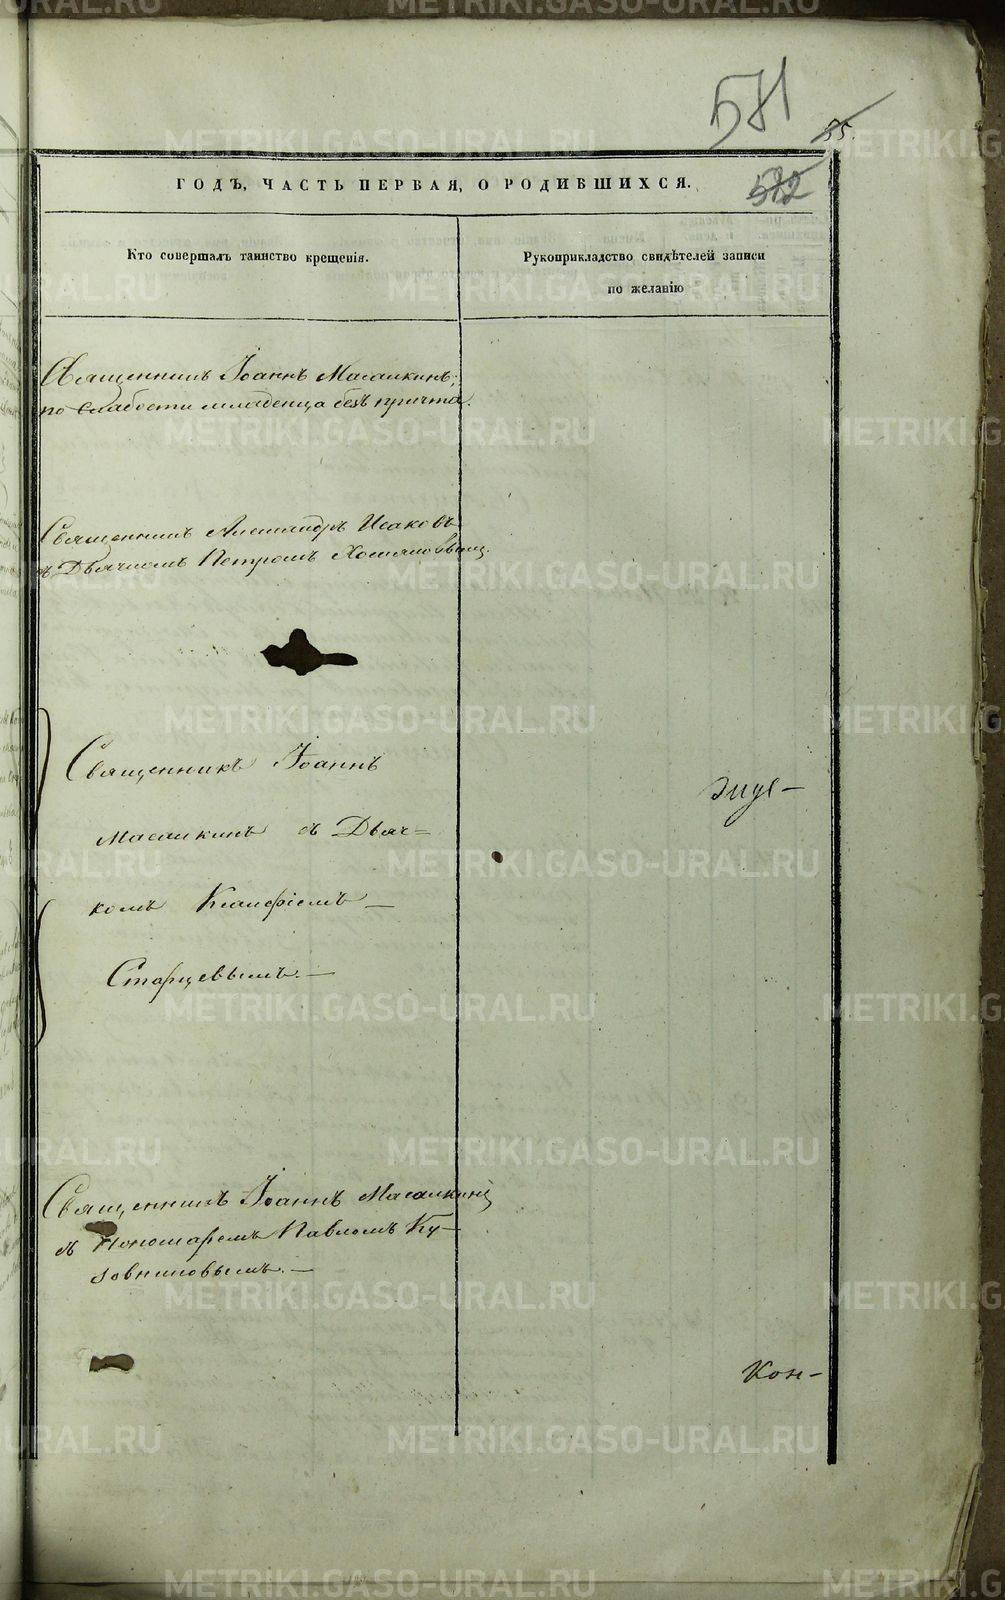 581
55.
582
ГОДЪ, ЧАСТЬ ПЕРВАЯ, О РОДИВШИХСЯ.
Кто совершалъ таинство крещенія.
Рукоприкладство свидѣтелей записи
по желанію
Священникъ Іоаннъ Масалкинъ;
по слабости младенца безъ причта.
Священникъ Александръ Исаковъ
съ Дьячкомъ Петромъ
Священникъ Іоаннъ
Масалкинъ съ Дьяч=
комъ
Старцевымъ. —
Священникъ Іоаннъ Масалкинъ
съ Пономаремъ Павломъ Ку-
зовниковымъ. —
Кон-
METRIKI.GASO-URAL.RU